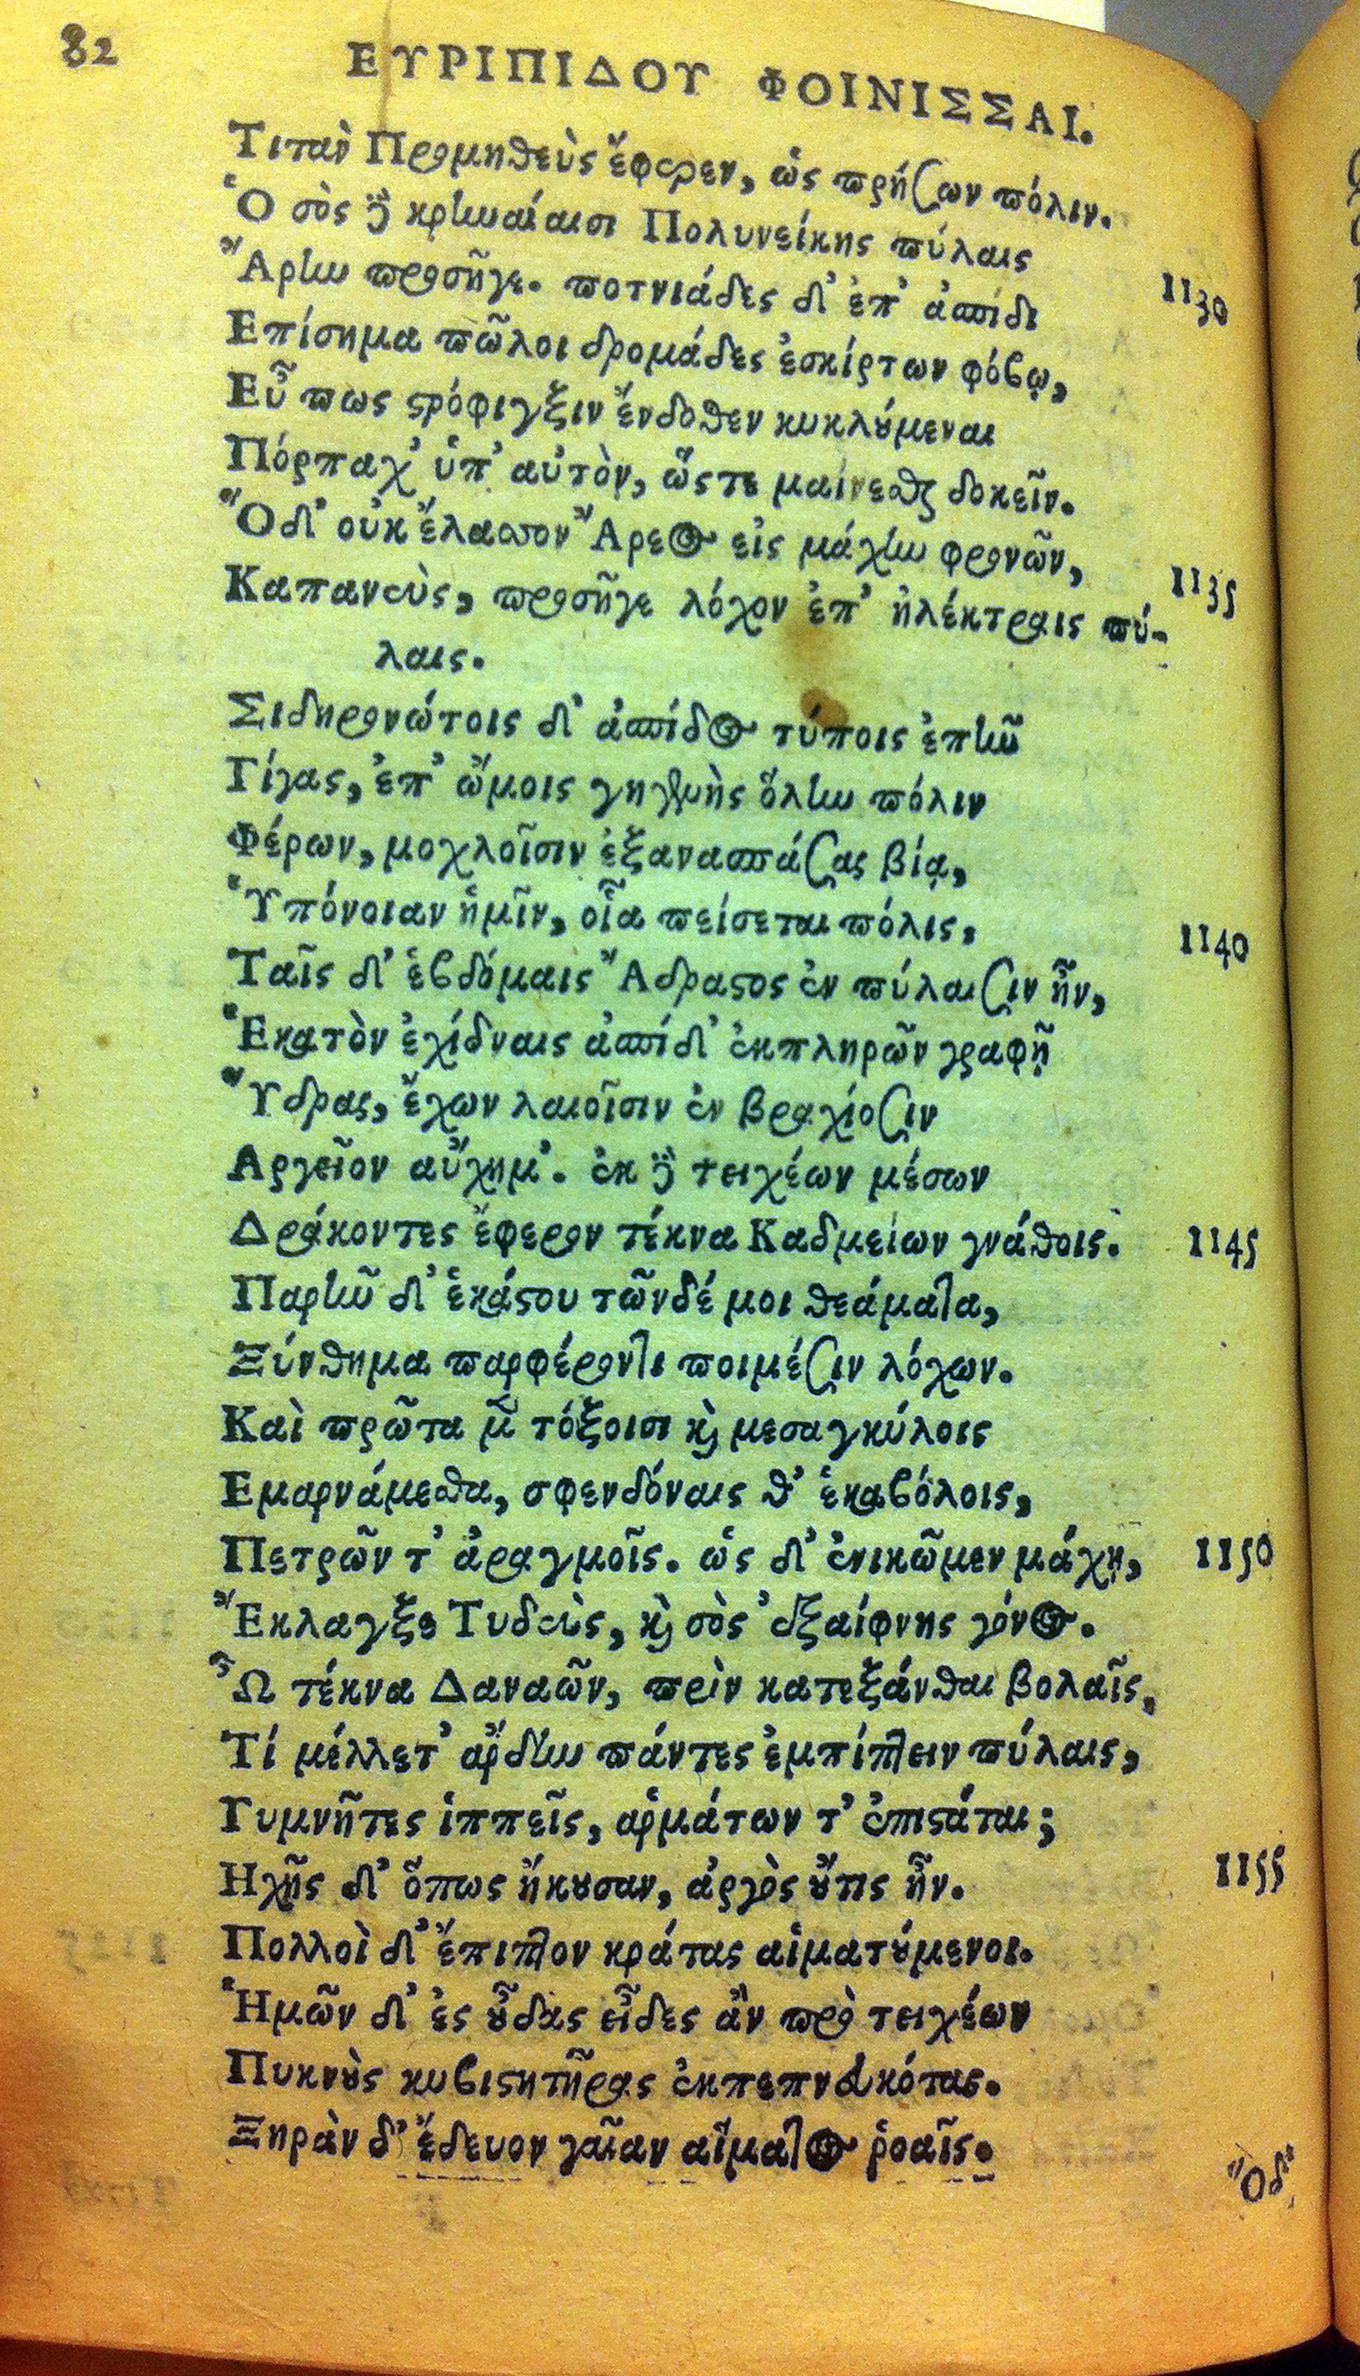 82
ΕΥΡΙΠΙΔΟΥ ΦΟΙΝΙΣΣΑΙ.
Τιτὰν Προμηθεὺς ἔφερεν, ὡς πρήσων πόλιν.
Ὁ σὸς δὲ κρηναίαισι Πολυνείκης πύλαις
Ἄρην προσῆγε. ποτνιάδες δ' ἐπ' ἀσπίδι 1130
Επίσημα πῶλοι δρομάδες ἐσκίρτων φόβῳ,
Εὖ πως στρόφιγξιν ἔνδοθεν κυκλούμεναι
Πόρπαχ' ὑπ' αὐτὸν, ὥστε μαίνεσθαι δοκεῖν.
Ὅ δ' οὐκ ἔλασσον Ἄρεος εἰς μάχην φρονῶν, 1135
Καπανεὺς, προσῆγε λόχον ἐπ' ἠλέκτραις πύ-
λαις.
Σιδηρονώτοις δ' ἀσπίδος τύποις ἐπῆν
Γίγας, ἐπ' ὤμοις γηγενὴς ὅλην πόλιν
Φέρων, μοχλοῖσιν ἐξανασπάσας βίᾳ,
Ὑπόνοιαν ἡμῖν, οἷα πείσεται πόλις, 1140
Ταῖς δ' ἑβδόμαις Ἄδραστος ἐν πύλαισιν ἦν,
Ἑκατὸν ἐχίδναις ἀσπίδ' ἐκπληρῶν γραφῇ
Ὕδρας, ἔχων λαιοῖσιν ἐν βραχίοσιν
Αργεῖον αὔχημ'. ἐκ δὲ τειχέων μέσων
Δράκοντες ἔφερον τέκνα Καδμείων γνάθοις. 1145
Παρῆν δ' ἑκάστου τῶνδέ μοι θεάματα,
Ξύνθημα παρφέροντι ποιμέσιν λόχων.
Καὶ πρῶτα μὲν τόξοισι καὶ μεσαγκύλοις
Εμαρνάμεσθα, σφενδόναις θ' ἑκαβόλοις,
Πετρῶν τ' ἀραγμοῖς. ὡς δ' ἐνικῶμεν μάχῃ, 1150
Ἔκλαγξε Τυδεὺς, καὶ σὸς ἐξαίφνης γόνος.
Ὦ τέκνα Δαναῶν, πρὶν κατεξάνθαι βολαῖς,
Τί μέλλετ' ἄρδην πάντες ἐμπίπτειν πύλαις,
Γυμνῆτες ἱππεῖς, ἁρμάτων τ' ἐπιστάται;
Ηχῆς δ' ὅπως ἤκουσαν, ἀργὸς οὔτις ἦν. 1155
Πολλοὶ δ' ἔπιπτον κράτας αἱματούμενοι.
Ἡμῶν δ' ἐς οὖδας εἶδες ἂν πρὸ τειχέων
Πυκνοὺς κυβιστητῆρας ἐκπεπνευκότας.
Ξηρὰν δ' ἔδευον γαῖαν αἵματος ῥοαῖς.
Ὅ δ'